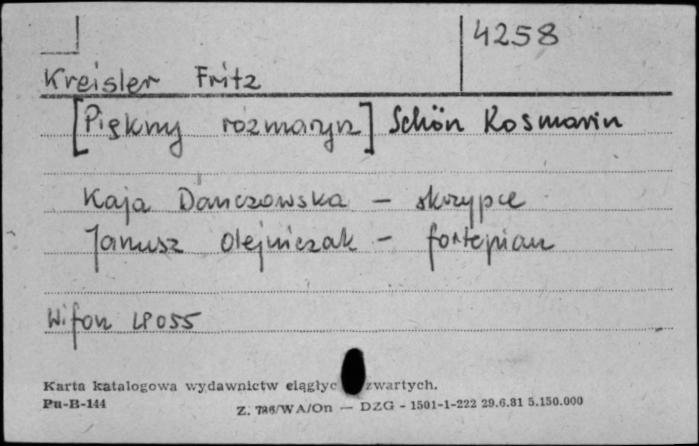 4258
Kreisler Fritz
[Piękny rozmaryn] Schön Rosmarin
Kaja Danczowska – skrzypce
Janusz Olejniczak – fortepian
Wifon LP055
Karta katalogowa wydawnictw ciągłyc zwartych.
Pu-B-144
Z. 786/WA/On — DZG - 1501-1-222 29.6.81 5.150.000